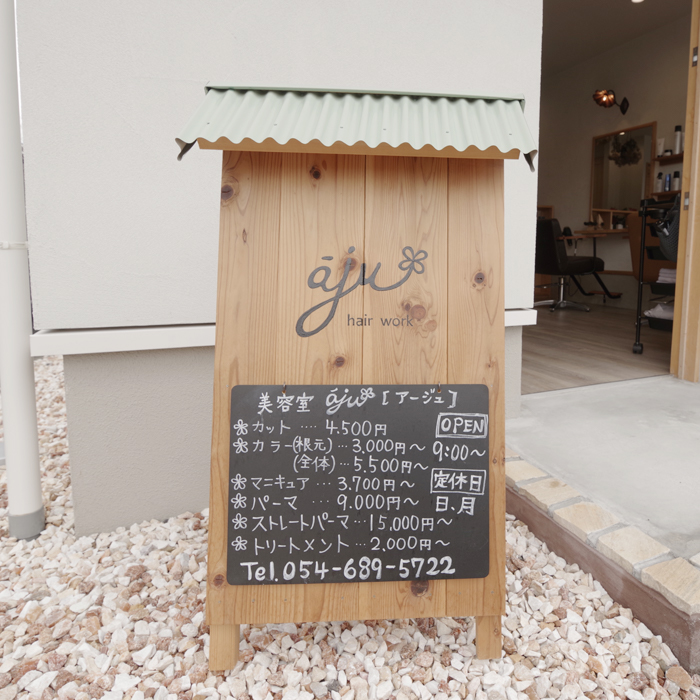 āju
hair work
美容室 āju [アージュ]
カット ···· 4.500円
カラー(根元) ··· 3.000円〜
(全体) ··· 5.500円〜
マニキュア ··· 3.700円〜
パーマ ··· 9.000円〜
ストレートパーマ ··· 15.000円〜
トリートメント ··· 2.000円〜
OPEN
9:00〜
定休日
日.月
Tel.054-689-5722